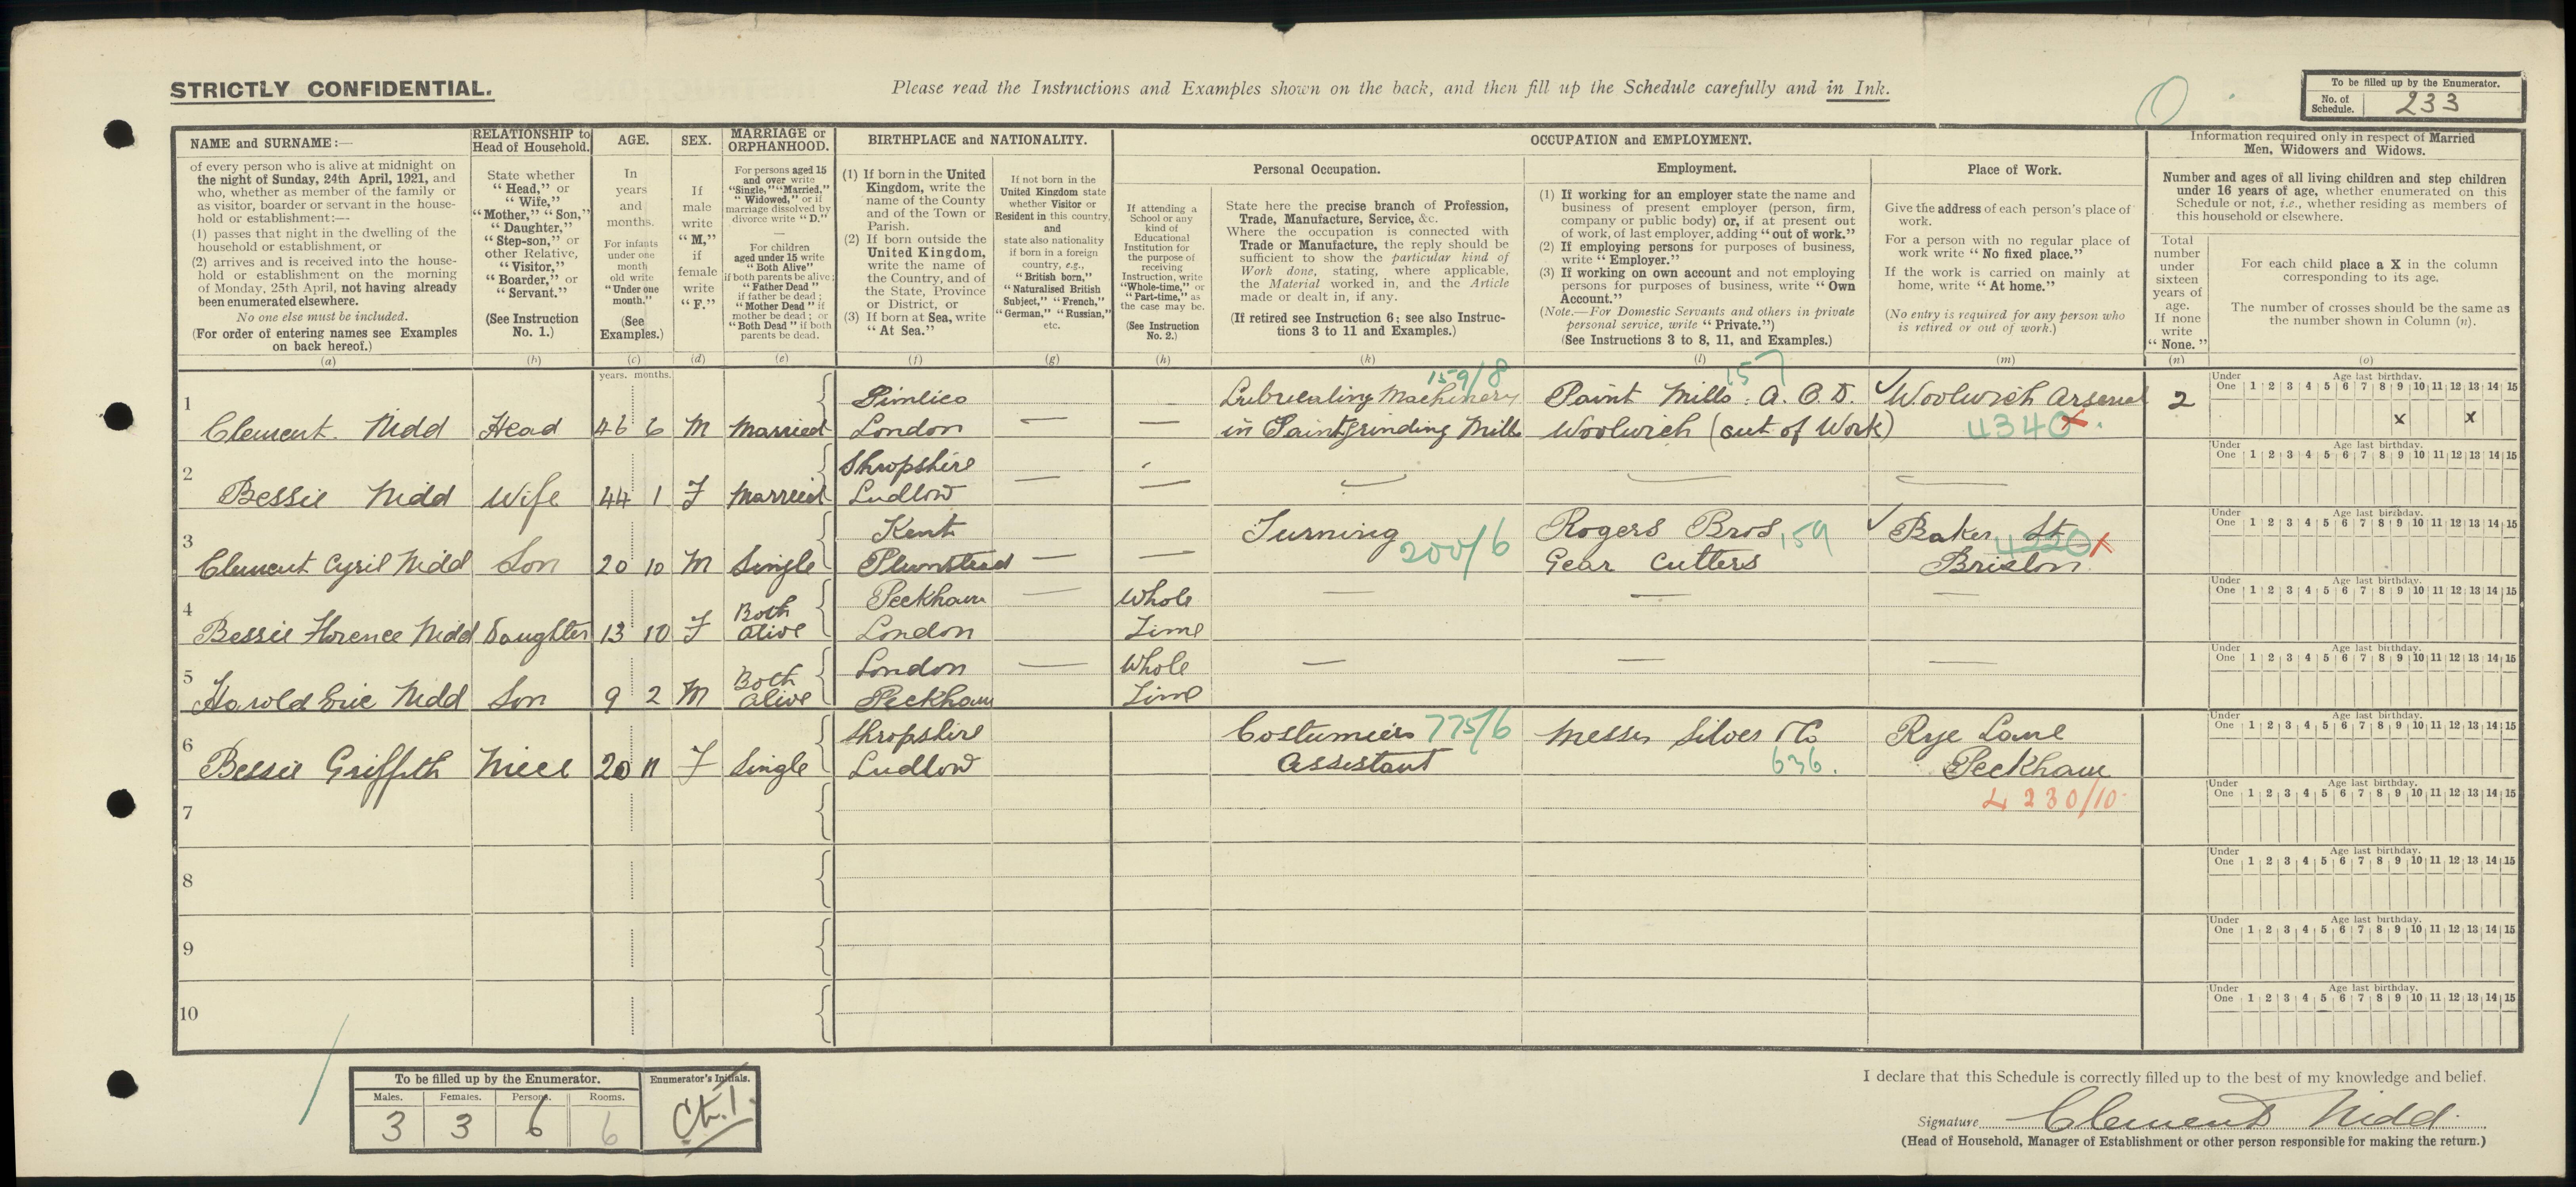 STRICTLY CONFIDENTIAL.
Please read the Instructions and Examples shown on the back, and then fill up the Schedule carefully and in Ink.
To be filled up by the Enumerator.
No. of Schedule. 233
NAME and SURNAME:—
of every person who is alive at midnight on
the night of Sunday, 24th April, 1921, and
who, whether as member of the family or
as visitor, boarder or servant in the house-
hold or establishment:—
(1) passes that night in the dwelling of the
household or establishment, or
(2) arrives and is received into the house-
hold or establishment on the morning
of Monday, 25th April, not having already
been enumerated elsewhere.
No one else must be included.
(For order of entering names see Examples
on back hereof.)
(a)
RELATIONSHIP to
Head of Household.
State whether
"Head," or
"Wife,"
"Mother," "Son,"
"Daughter,"
"Step-son," or
other Relative,
"Visitor,"
"Boarder," or
"Servant."
(See Instruction
No. 1.)
(b)
AGE.
In
years
and
months.
For infants
under one
month
old write
"Under one
month."
(See
Examples.)
(c)
SEX.
If
male
write
"M,"
if
female
write
"F."
(d)
MARRIAGE or
ORPHANHOOD.
For persons aged 15
and over write
"Single," "Married,"
"Widowed," or if
marriage dissolved by
divorce write "D."
—
For children
aged under 15 write
"Both Alive"
if both parents be alive;
"Father Dead"
if father be dead;
"Mother Dead" if
mother be dead; or
"Both Dead" if both
parents be dead.
(e)
BIRTHPLACE and NATIONALITY.
(1) If born in the United
Kingdom, write the
name of the County
and of the Town or
Parish.
(2) If born outside the
United Kingdom,
write the name of
the Country, and of
the State, Province
or District, or
(3) If born at Sea, write
"At Sea."
(f)
If not born in the
United Kingdom state
whether Visitor or
Resident in this country,
and
state also nationality
if born in a foreign
country, e.g.,
"British born,"
"Naturalised British
Subject," "French,"
"German," "Russian,"
etc.
(g)
OCCUPATION and EMPLOYMENT.
If attending a
School or any
kind of
Educational
Institution for
the purpose of
receiving
Instruction, write
"Whole-time," or
"Part-time," as
the case may be.
(See Instruction
No. 2.)
(h)
Personal Occupation.
State here the precise branch of Profession,
Trade, Manufacture, Service, &c.
Where the occupation is connected with
Trade or Manufacture, the reply should be
sufficient to show the particular kind of
Work done, stating, where applicable,
the Material worked in, and the Article
made or dealt in, if any.
(If retired see Instruction 6; see also Instruc-
tions 3 to 11 and Examples.)
(k)
Employment.
(1) If working for an employer state the name and
business of present employer (person, firm,
company or public body) or, if at present out
of work, of last employer, adding "out of work."
(2) If employing persons for purposes of business,
write "Employer."
(3) If working on own account and not employing
persons for purposes of business, write "Own
Account."
(Note.—For Domestic Servants and others in private
personal service, write "Private.")
(See Instructions 3 to 8, 11, and Examples.)
(l)
Place of Work.
Give the address of each person's place of
work.
For a person with no regular place of
work write "No fixed place."
If the work is carried on mainly at
home, write "At home."
(No entry is required for any person who
is retired or out of work.)
(m)
Information required only in respect of Married
Men, Widowers and Widows.
Number and ages of all living children and step children
under 16 years of age, whether enumerated on this
Schedule or not, i.e., whether residing as members of
this household or elsewhere.
Total
number
under
sixteen
years of
age.
If none
write
"None."
(n)
For each child place a X in the column
corresponding to its age.
The number of crosses should be the same as
the number shown in Column (n).
(o)
years. months.
1 Clement. Nidd Head 46 6 M Married Pimlico London — — Lubricating Machinery in Paintgrinding Mills 159/8 Paint Mills. A.O.D. Woolwich (out of Work) 157 Woolwich Arsenal 4340 X 2
Under One 1 2 3 4 5 6 7 8 9 10 11 12 13 14 15 Age last birthday.
x x
2 Bessie Nidd Wife 44 1 F Married Shropshire Ludlow — — — — —
Under One 1 2 3 4 5 6 7 8 9 10 11 12 13 14 15 Age last birthday.
3 Clement Cyril Nidd Son 20 10 M Single Kent Plumstead — — Turning 200/6 Rogers Bros, Gear Cutters 159 Baker St Brixton 4220 X
Under One 1 2 3 4 5 6 7 8 9 10 11 12 13 14 15 Age last birthday.
4 Bessie Florence Nidd Daughter 13 10 F Both alive Peckham London — Whole Time — — —
Under One 1 2 3 4 5 6 7 8 9 10 11 12 13 14 15 Age last birthday.
5 Harold Eric Nidd Son 9 2 M Both alive London Peckham — Whole Time — — —
Under One 1 2 3 4 5 6 7 8 9 10 11 12 13 14 15 Age last birthday.
6 Bessie Griffith Niece 20 11 F Single Shropshire Ludlow Costumiers Assistant 775/6 Messrs Silver & Co 636. Rye Lane Peckham
Under One 1 2 3 4 5 6 7 8 9 10 11 12 13 14 15 Age last birthday.
7 4230/10
Under One 1 2 3 4 5 6 7 8 9 10 11 12 13 14 15 Age last birthday.
8
Under One 1 2 3 4 5 6 7 8 9 10 11 12 13 14 15 Age last birthday.
9
Under One 1 2 3 4 5 6 7 8 9 10 11 12 13 14 15 Age last birthday.
10
Under One 1 2 3 4 5 6 7 8 9 10 11 12 13 14 15 Age last birthday.
To be filled up by the Enumerator.
Males. Females. Persons. Rooms.
3 3 6 6
Enumerator's Initials.
I declare that this Schedule is correctly filled up to the best of my knowledge and belief.
Signature Clement Nidd.
(Head of Household, Manager of Establishment or other person responsible for making the return.)